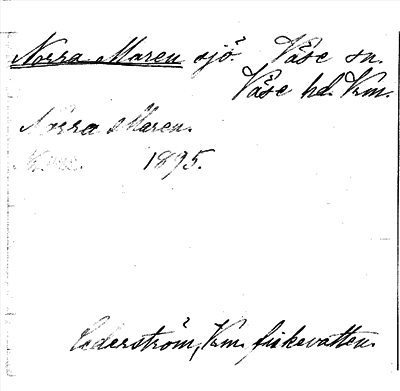 Norra Maren sjö. Väse sn.
Väse hd. Vrm.
Norra Maren.
1895.
Cederström, Vrm. fiskevatten.